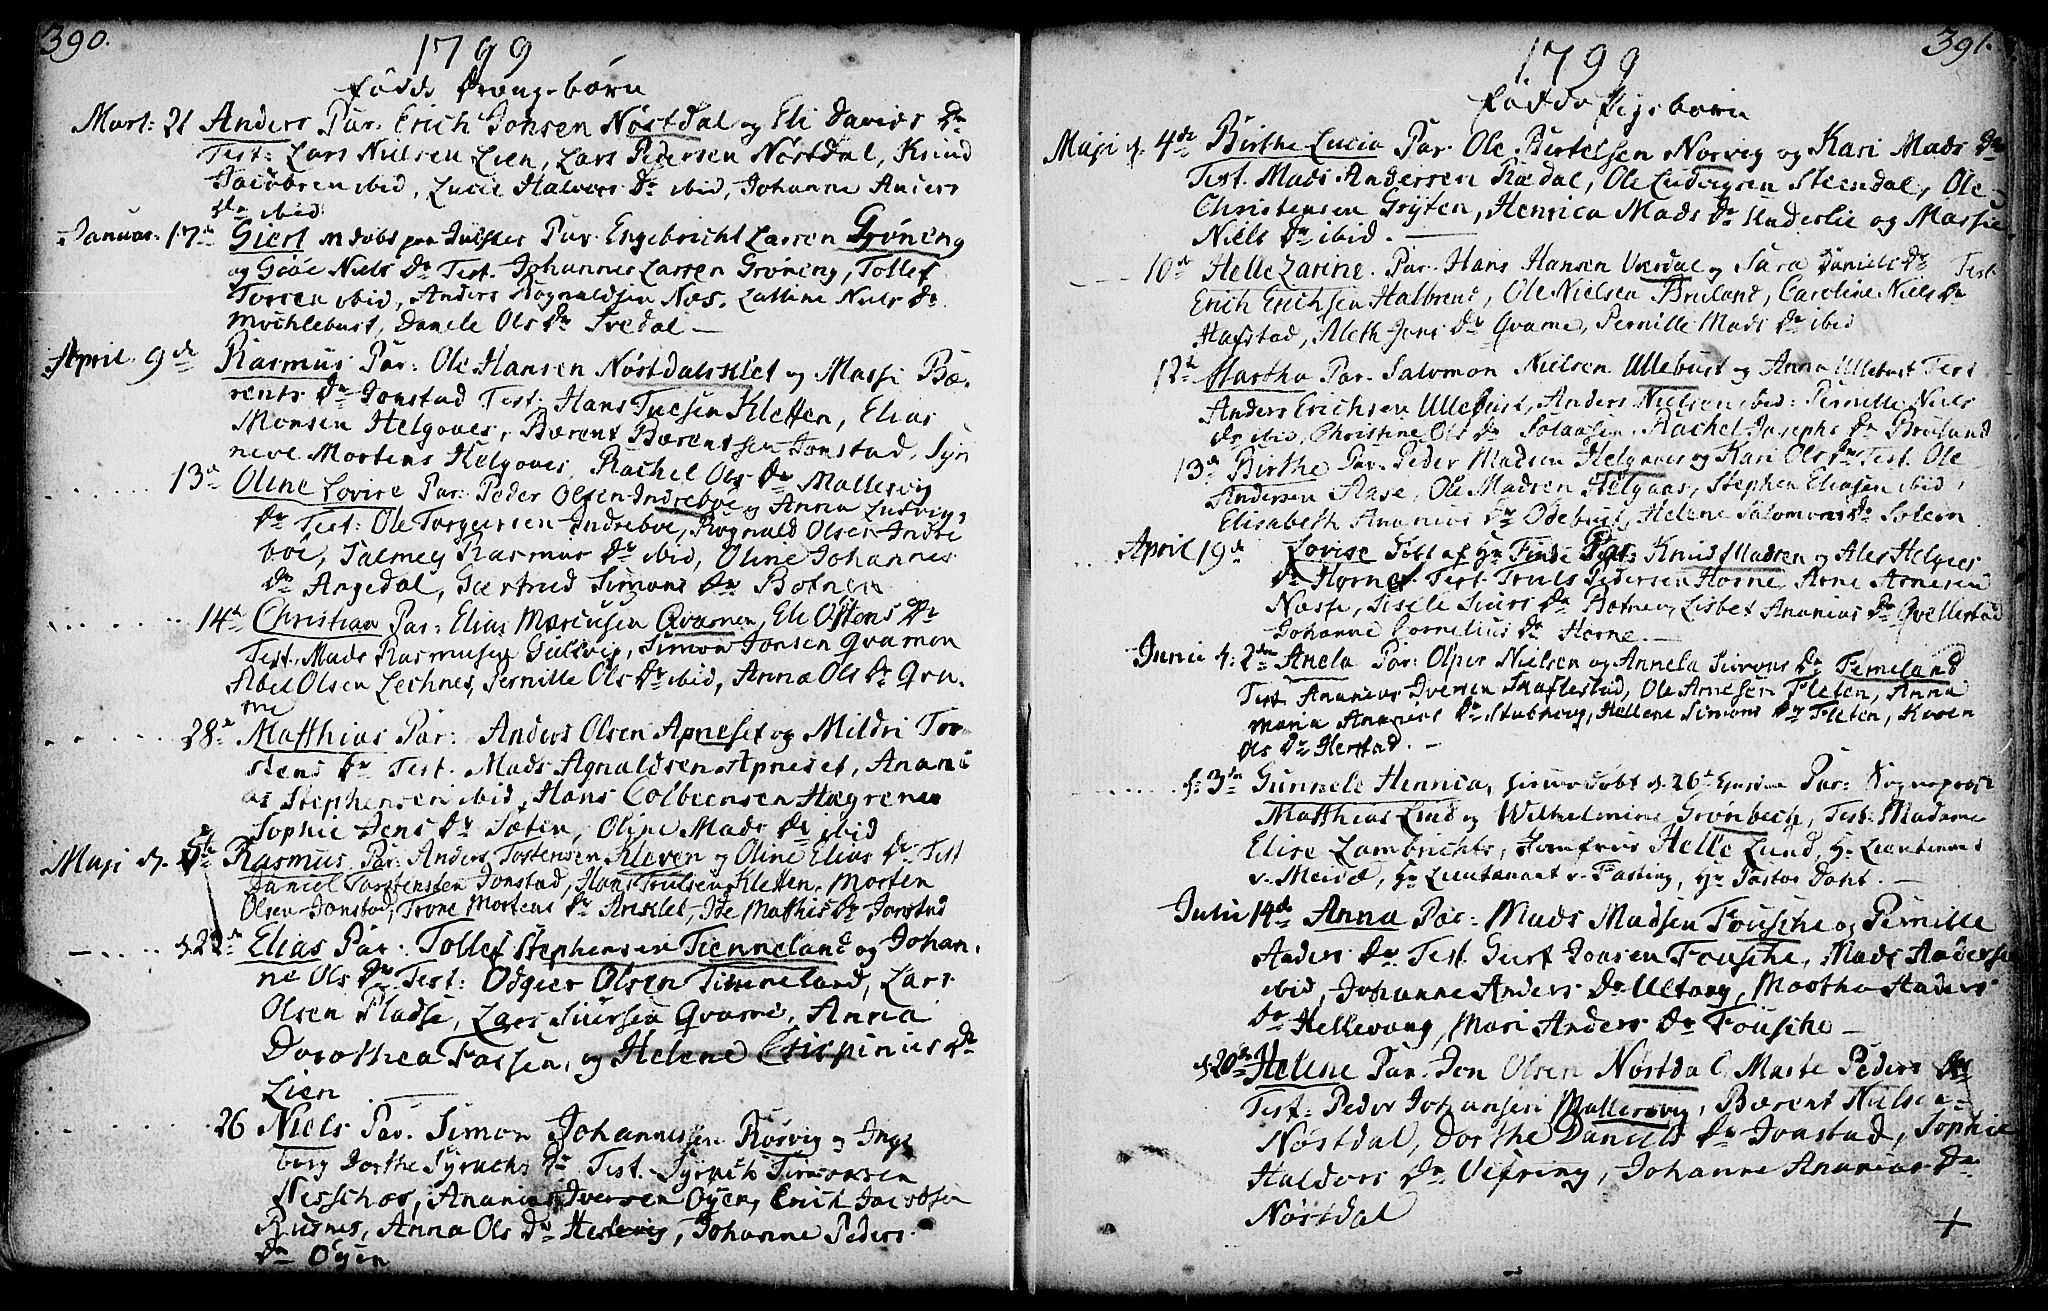 390.
1799
fødde Drengebørn
Mart: 21 Anders Par. Erich Jonsen Nøstdal og Eli Davids Dr
Test: Lars Nielsen Lien, Lars Pedersen Nøstdal, Knud
Jacobsen ibid, Lucie Halvors Dr ibid, Johanne Anders
Dr ibid
Januar. 17de Giert Par. Engebricht Larsen Grøning
og Niels Dr Test. Johannes Larsen Grøning, Tollef
Tossen ibid, Anders Rognaldsen Næs. Niels Dr
Mychlebust, Danele Ols Dr Svedal —
April 9de Rasmus Par: Ole Hansen Nøstdalsklet og Massi Bæ-
rents Dr Jonstad Test: Hans Kletten, Elias
Monsen Helgaaes, Bærent Bærentsen Jonstad, Syn
neve Mortens Helgaaes, Rachel Ols Dr Mallesvig
13de Oline Lovise Par: Peder Olsen Indreboe og Anna Ludvigs
Dr Test: Ole Torgersen Indreboe, Rognald Olsen Indre
boe, Salmey Rasmus Dr ibid, Oline Johannes
Dr Angedal, Geertrud Simons Dr Botnen
14de Christian Par: Elias Marcusen Qvamen, Eli Ostens Dr
Test. Mads Rasmusen Gullvig, Simon Jonsen Qvamen
Abel Olsen Lechnes, Pernille Ols Dr ibid, Anna Ols Dr Qva-
me
28de Matthias Par: Anders Olsen Apneset og Mildri Tor
stens Dr Test. Mads Agnaldsen Apneset, Anani
as Stephensen ibid, Hans Colbeensen Hægrenes
Sophie Jens Dr Sæten, Oline Mads Dr ibid
Maji d. 5te Rasmus, Par: Anders Tostensen Kleven og Oline Elias Dr Test
Daniel Torstensen Jonstad, Hans Trulsen Kletten, Morten
Olsen Jonstad, Trone Mortens Dr Arklet, Ide Mathis Dr Jonstad
Elias Par. Tollef Stephensen Tienneland og Johan-
ne Ols Dr Test: Odgier Olsen Timmeland, Lars
Olsen Pladse, Lars Siursen Qvame, Anna
Dorothea Fossen, og Helene Crispinius Dr
Lien
26 Niels Par. Simon Johannesen Rørvig og Inge
borg Dorthe Syrachs Dr Test. Syrach Simonsen
Ananias Iversen Oyen, Erich Jacobsen
Rusnes, Anna Ols Dr Hestevig, Johanne Peders
Dr Oyen
391.
1799
fødde Pigebørn
Maji d. 4de Birthe Lucia Par. Ole Bertelsen Norvig og Kari Mads Dr
Test. Mads Andersen Rædal, Ole Ludvigsen Steendal, Ole
Christensen Gryten, Henrica Mads Dr Underlie og Massie
Niels Dr ibid. —
10de Helle Zarine. Par. Hans Hansen og Sara Daniels Dr Test
Erich Erichsen Halbrend, Ole Nielsen Bruland, Caroline Niels Dr
Hafstad, Aleth Jens Dr Qvame, Pernille Mads Dr ibid
12te Martha Par. Salomon Nielsen Ullebust og Anna Ullebust Test
Anders Erichsen Ullebust, Anders Nielsen ibid: Pernille Niels
Dr ibid, Christine Ols Dr Rachel Josephs Dr Bruland
13de Birthe Par. Peder Madsen Helgaaes og Kari Ols Dr Test. Ole
Andersen Aase, Ole Madsen Helgaas, Stephen Eliasen ibid,
Elisabeth Ananias Dr Odebust, Helene Salomons Dr Solem
April 19de Lovise Par: Knud Madsen og Ales Helges
Dr Horne. Test. Truls Pedersen Horne Arne Arnesen
Nasse, Sisele Siurs Dr Botnen, Lisbet Ananias Dr Qvellestad
Johanne Cornelius Dr Horne. —
Junii d: 2den Anela Par: Olper Nielsen og Annela Simons Dr Temeland
Test. Ananias Iversen Skaflestad, Ole Arnesen Fleten, Anna
Maria Ananias Dr Stubseng, Hellene Simons Dr Fleten, Karen
Ols Dr Herstad. —
d: 3die Gunnele Henrica, d. 26t Par: Sogneprest
Matthias Lund og Wilhelmine Grønbech, Test: Madame
Elise Lambrichts, Jomfrue Helle Lund, Hr Lieutenant
v. Hr Lieutenant v. Fasting, Hr Pastor Daht. —
Julii 14de Anna Par: Mads Madsen Fousche og Pernille
Anders Dr Test. Jonsen Fousche, Mads Andersen
ibid, Johanne Anders Dr Ultang, Martha Anders
Dr Hellevang, Mari Anders Dr Fousche —
d. 20de Helene Par. Jon Olsen Nøstdal Marte Peders Dr
Test: Peder Johansen Mallesvig, Bærent Nielsen
Nøstdal, Dorthe Daniels Dr Jonstad, Sophie
Haldors Dr Vefring, Johanne Ananias Dr
Nøstdal
+